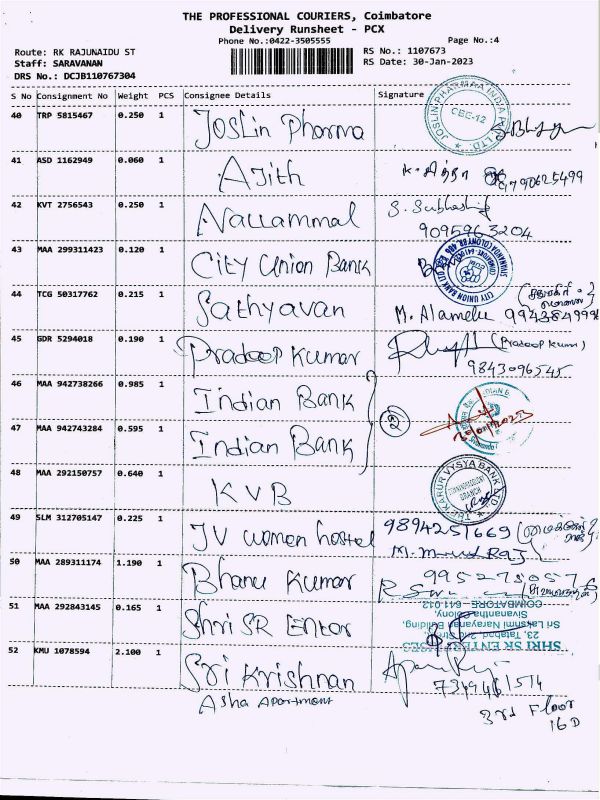 THE PROFESSIONAL COURIERS, Coimbatore
Delivery Runsheet - PCX
Phone No.:0422-3505555
Page No.:4
Route: RK RAJUNAIDU ST
RS No.: 1107673
Staff: SARAVANAN
RS Date: 30-Jan-2023
DRS No.: DCJB110767304
S No Consignment No Weight PCS Consignee Details Signature
40 TRP 5815467 0.250 1 Joslin Pharma
JOSLIN PHARMAA INDIA PVT. LTD. CBE-12
41 ASD 1162949 0.060 1 Ajith
9790625499
42 KVT 2756543 0.250 1 Nallammal
9095963204
43 MAA 299311423 0.120 1 City Union Bank
CITY UNION BANK LTD
44 TCG 50317762 0.215 1 Sathyavan M. Alamelu 9943849998
45 GDR 5294018 0.190 1 Pradeep Kumar (Pradeep Kum)
9843096545
46 MAA 942738266 0.985 1 Indian Bank
47 MAA 942743284 0.595 1 Indian Bank
2
48 MAA 292150757 0.640 1 KVB
THE KARUR VYSYA BANK LTD
49 SLM 312705147 0.225 1 JV women hostel 9894251669
50 MAA 289311174 1.190 1 Bhanu Kumar
51 MAA 292843145 0.165 1 Shri SR Enter
SHRI SK ENTERPRISES
23, Tatabad
Sri Lakshmi Narayanan Building
Sivanantha Colony,
COIMBATORE - 641 012
52 KMU 1078594 2.100 1 Sri Krishnan
7349461514
Asha Apartment
3rd Floor
16D